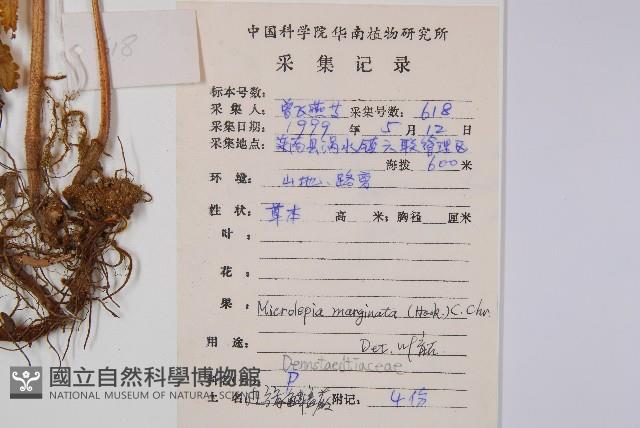 618
中国科学院华南植物研究所
采集记录
标本号数:
采集人: 曾飞燕等 采集号数: 618
采集日期: 1999 年 5 月 12 日
采集地点: 连南县涡水镇六联管理区
海拔 600 米
环境: 山地、路旁
性状: 草本 高 米; 胸径 厘米
叶:
花:
果:
Microlepia marginata (Hook.) C. Chr.
用途: Det.
Dennstaedtiaceae
P
土名 附记: 4份
國立自然科學博物館
NATIONAL MUSEUM OF NATURAL SCIENCE